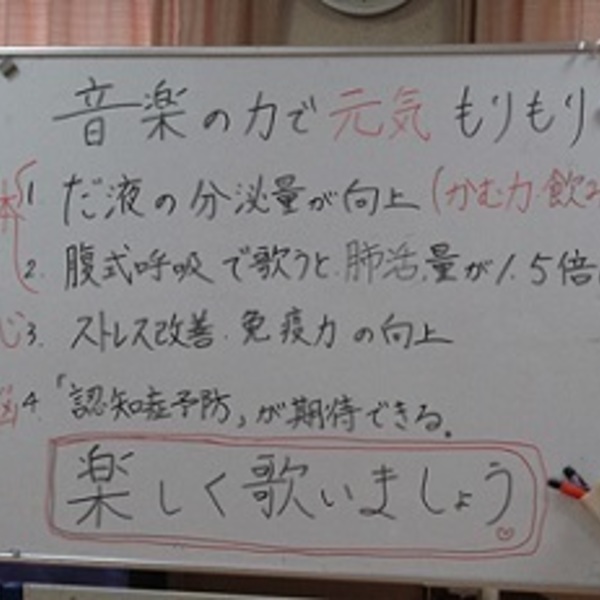 音楽の力で元気もりもり
体 1 だ液の分泌量が向上(かむ力・飲み
2. 腹式呼吸で歌うと、肺活量が1.5倍
心 3. ストレス改善・免疫力の向上
脳 4. 「認知症予防」が期待できる。
楽しく歌いましょう♡